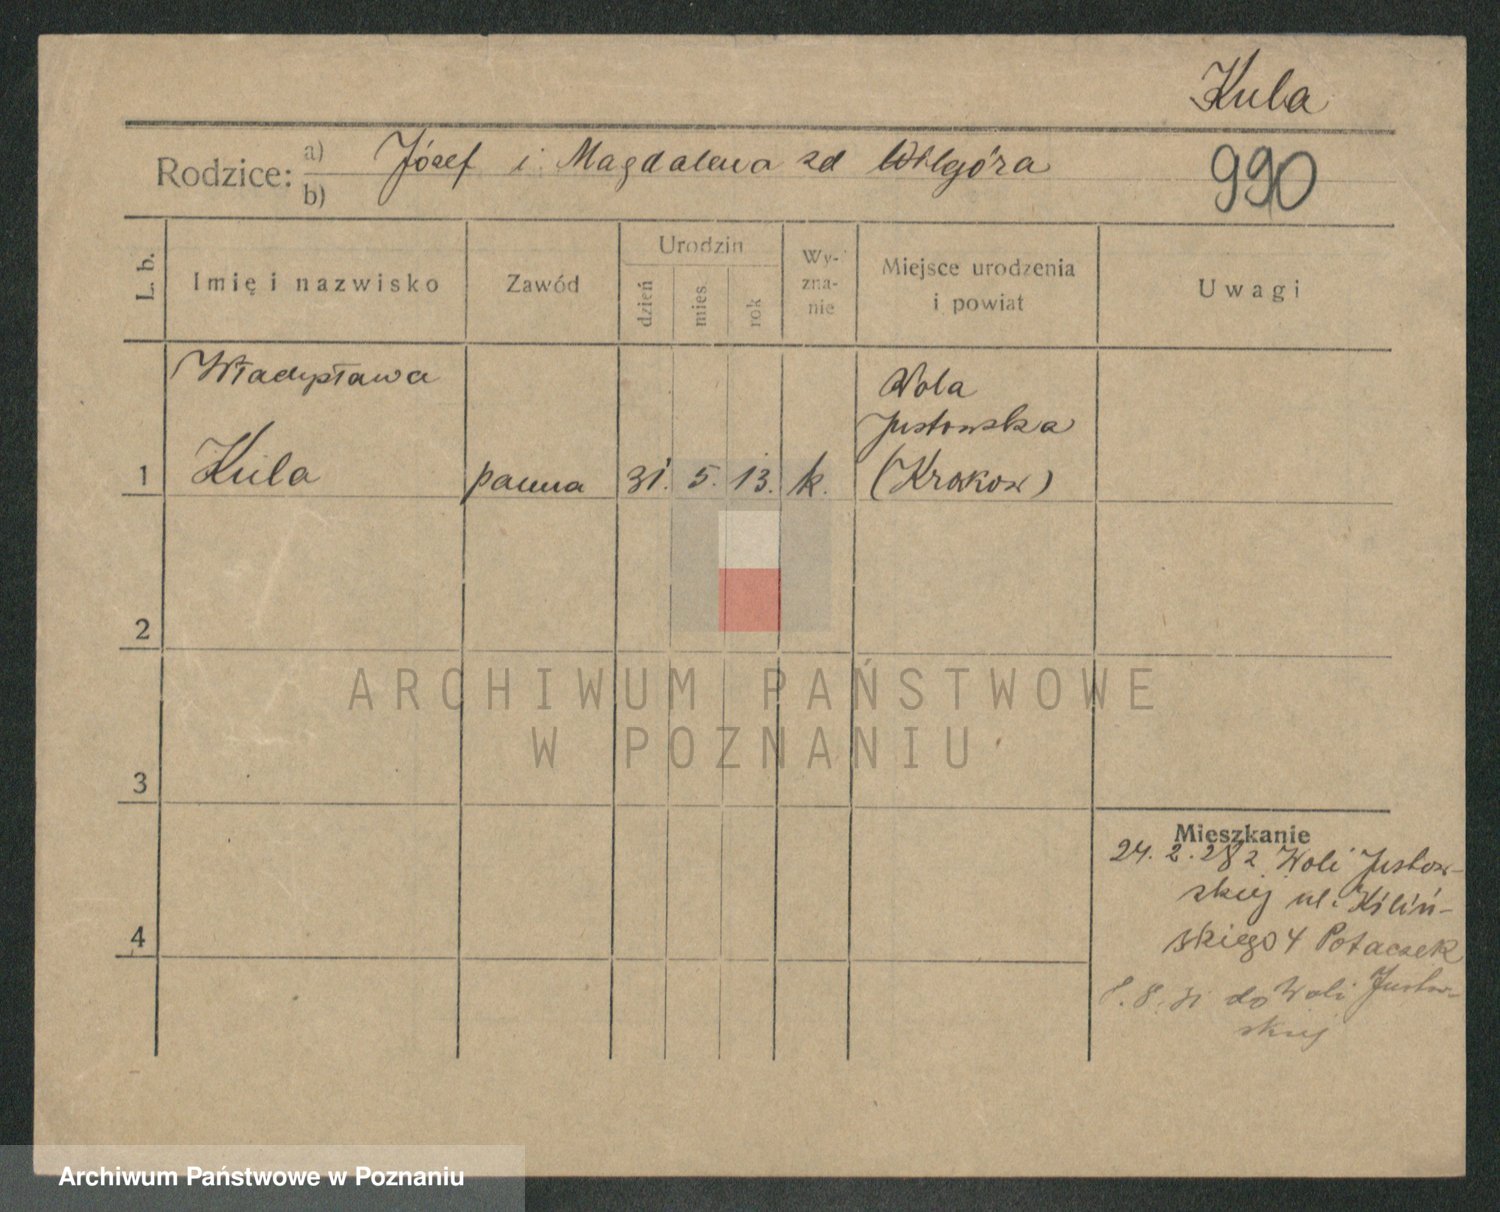 Kula
Rodzice: a) Józef i Magdalena zd
b)
990
L. b.
Imię i nazwisko
Zawód
Urodzin
dzień
mies.
rok
Wy-
zna-
nie
Miejsce urodzenia
i powiat
Uwagi
Władysława
Kula
1
panna
31. 5. 13. k.
Wola
Justowska
(Krakow)
2
3
4
Mieszkanie
24. 2. 28 z Woli Justow-
skiej ul. Kiliń-
skiego 4 Potaczek
8. 8. 31 do Woli Justow-
skiej
ARCHIWUM PAŃSTWOWE
W POZNANIU
Archiwum Państwowe w Poznaniu